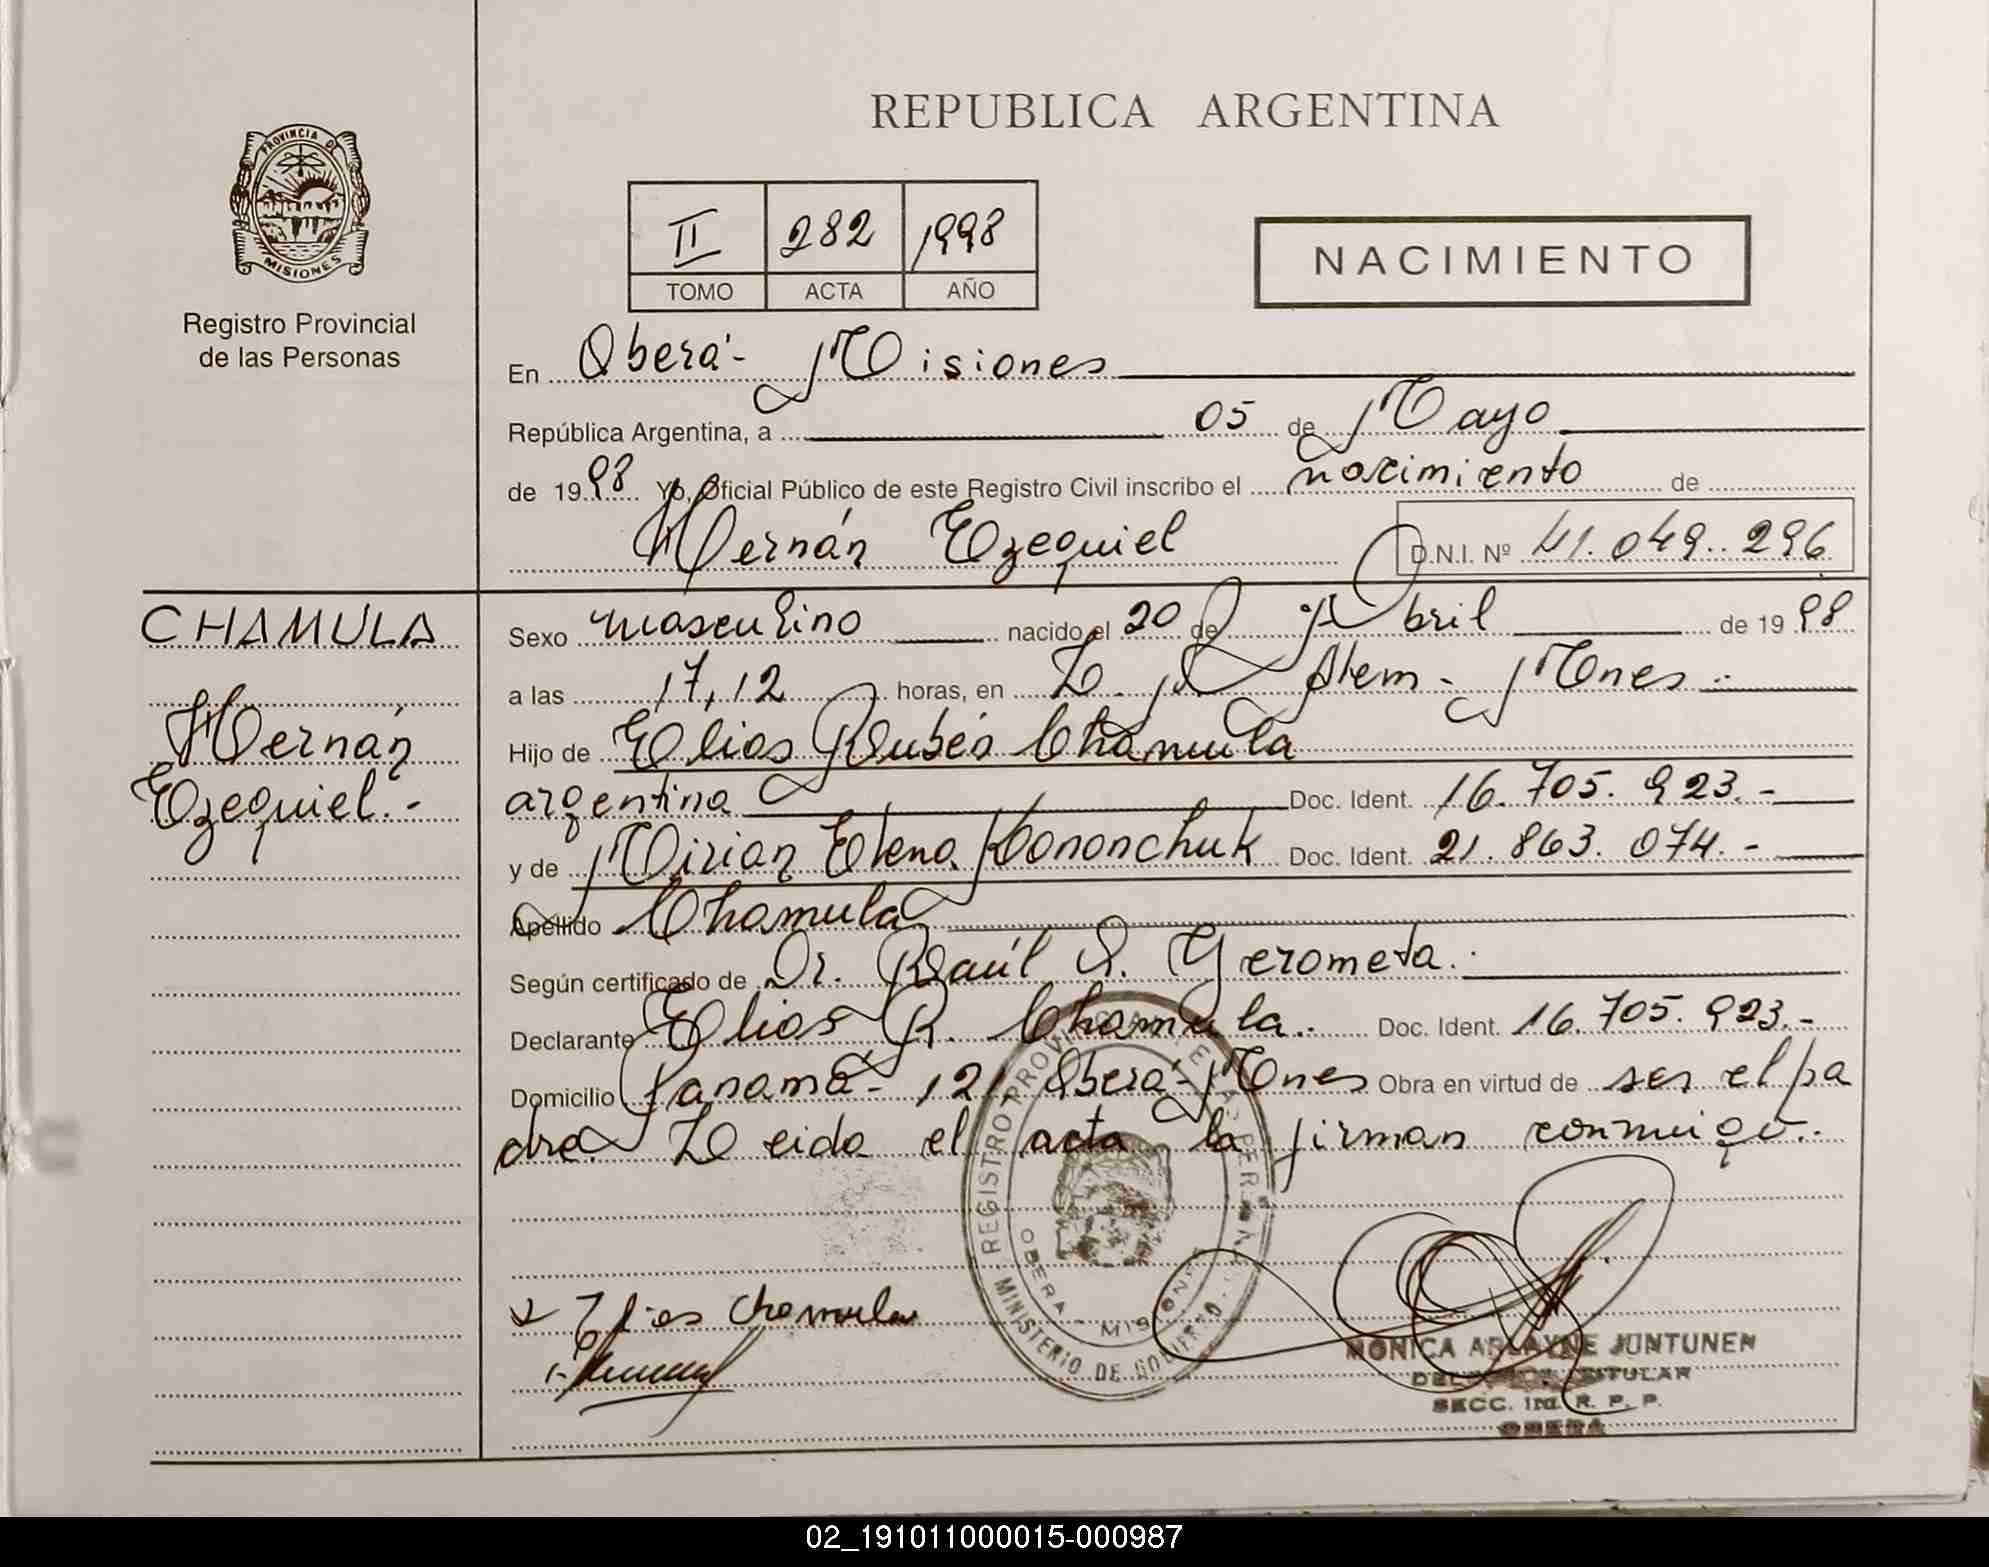 REPUBLICA ARGENTINA
PROVINCIA DE
MISIONES
Registro Provincial
de las Personas
II 282 1998
TOMO ACTA AÑO
NACIMIENTO
En Oberá - Misiones
República Argentina, a 05 de Mayo
de 1998 Yo, Oficial Público de este Registro Civil inscribo el nacimiento de
Hernán Ezequiel D.N.I. Nº 41.049.296
CHAMULA
Hernán
Ezequiel.-
Sexo masculino nacido el 20 de Abril de 1998
a las 17,12 horas, en L. N. Alem - Mnes
Hijo de Elias Rubén Chamula
argentina Doc. Ident. 16.705.923.-
y de Mirian Elena Kononchuk Doc. Ident. 21.863.074.-
Apellido Chamula
Según certificado de Dr. Raúl A. Gerometa.
Declarante Elias R. Chamula. Doc. Ident. 16.705.923.-
Domicilio Panamá - 121, Oberá - Mnes Obra en virtud de ser el pa
dre. Leida el acta la firman conmigo.
REGISTRO PROVINCIAL DE LAS PERSONAS
OBERA - MISIONES
MINISTERIO DE GOBIERNO
Elias Chamula
MONICA ARLAYNE JUNTUNEN
TITULAR
SECC. 1ra. R. P. P.
OBERA
02_191011000015-000987